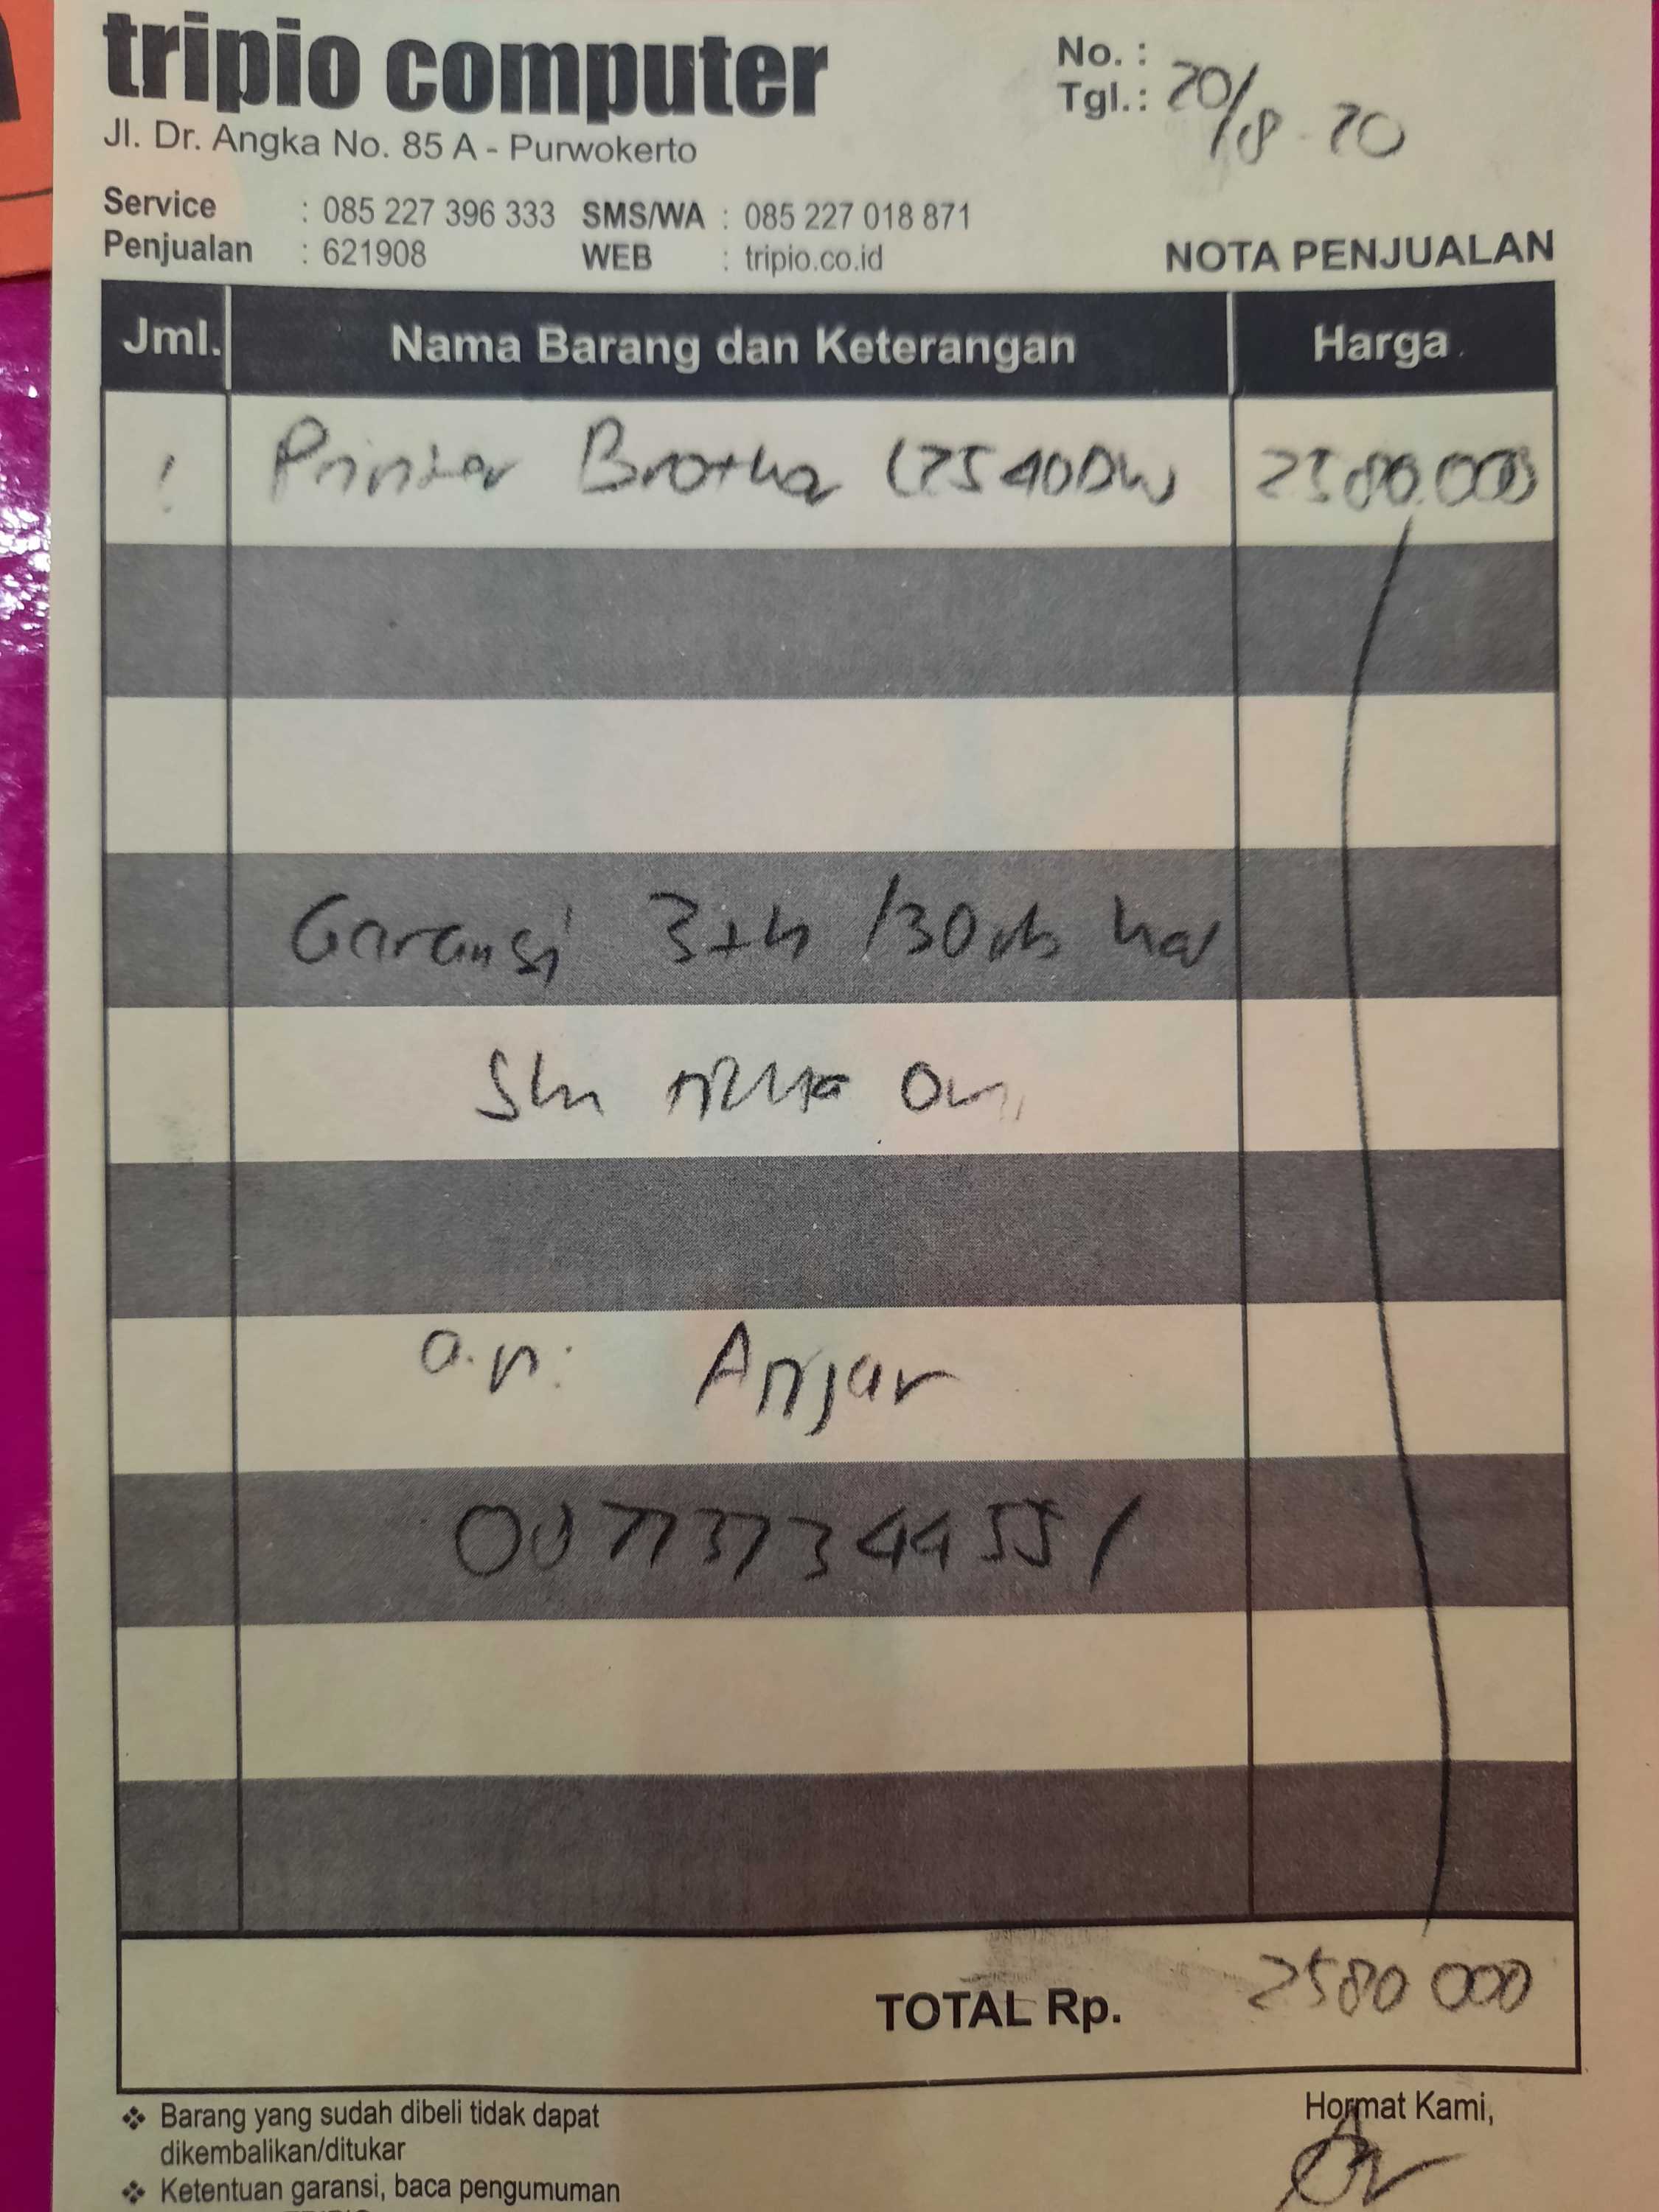 tripio computer
Jl. Dr. Angka No. 85 A - Purwokerto
No. :
Tgl.: 20/8-20
Service : 085 227 396 333 SMS/WA : 085 227 018 871
Penjualan : 621908 WEB : tripio.co.id
NOTA PENJUALAN
Jml. Nama Barang dan Keterangan Harga
1 Printer Brother (2540DW 2580.000
Garansi 3th /30rb hal
a.n: Anjar
TOTAL Rp. 2580 000
Hormat Kami,
❖ Barang yang sudah dibeli tidak dapat
dikembalikan/ditukar
❖ Ketentuan garansi, baca pengumuman